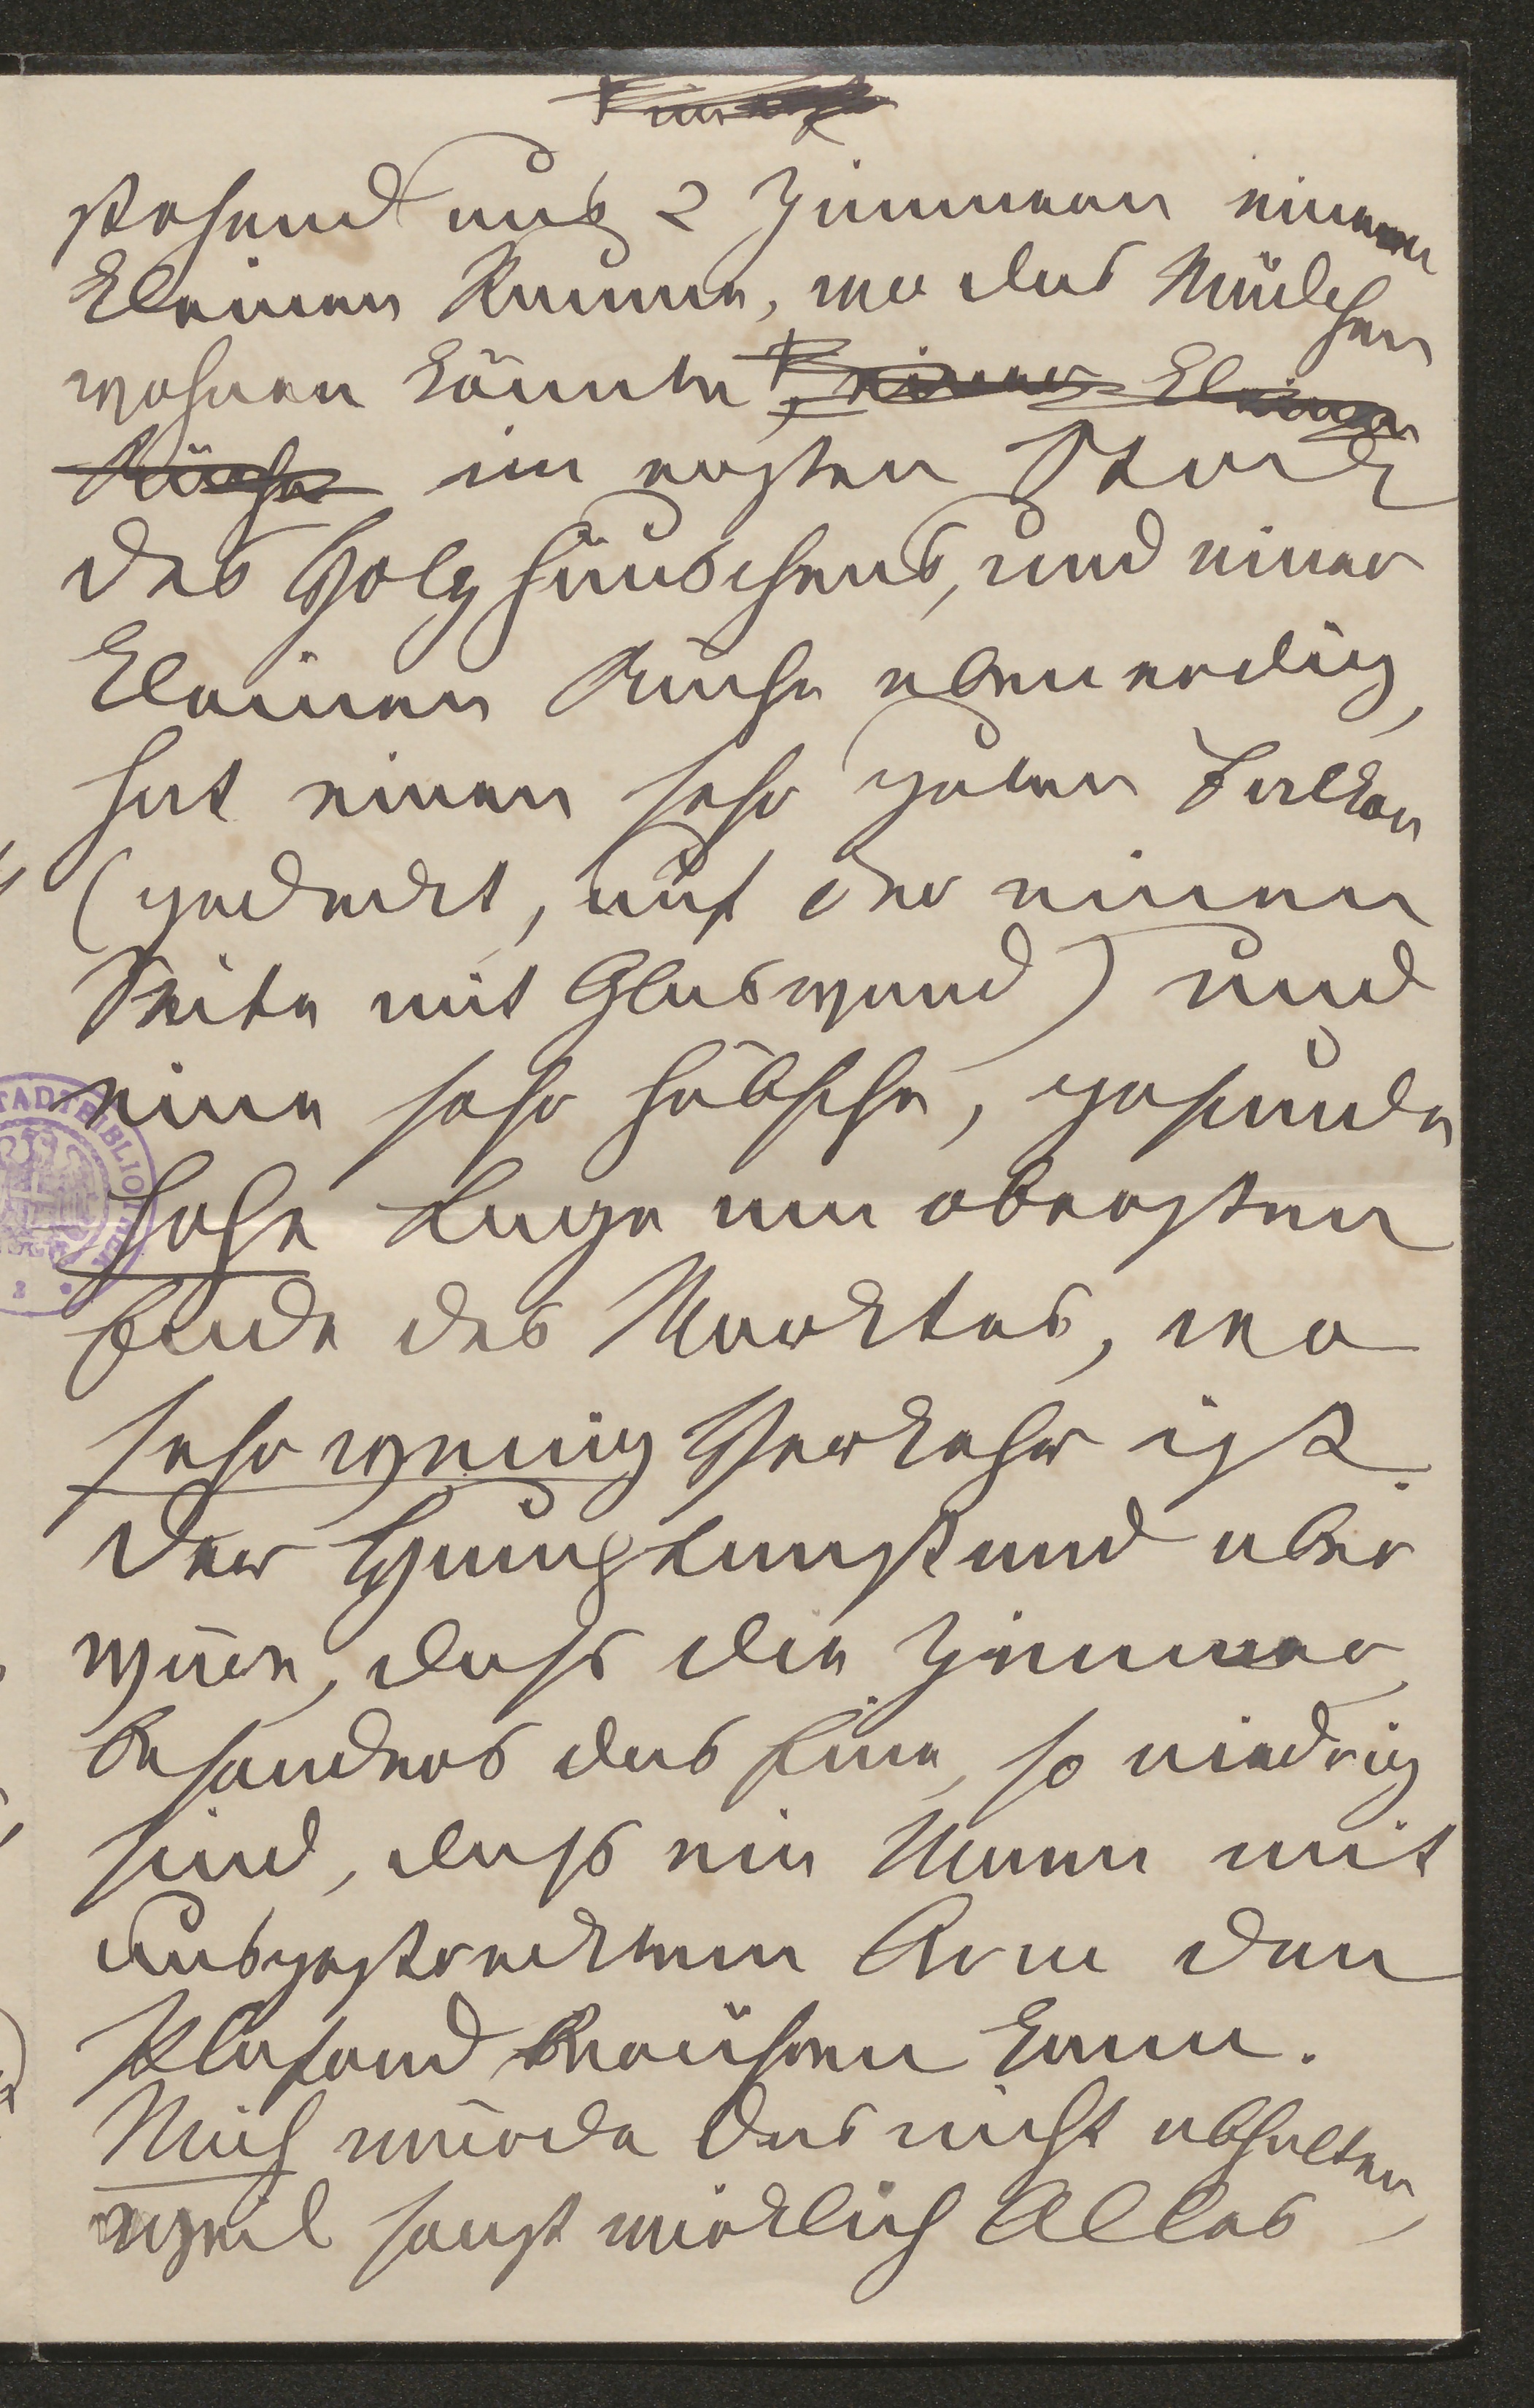 stehend aus 2 Zimmern einem
kleinen Raume, wo das Mädchen
wohnen könnte, einer kleinen
Küche im ersten Stock
des Holzhäuschens, und einer
kleinen Küche ebenerdig,
hat einen sehr guten Balkon
(gedeckt, auf der einen
Seite mit Glaswand) und
eine sehr hübsche, gesunde
hohe Lage am obersten
Ende des Marktes, wo
sehr wenig Verkehr ist.
Der Hauptanstand aber
wäre, dass die Zimmer,
besonders das Eine, so niedrig
sind, dass ein Mann mit
ausgestrecktem Arm den
Plafond berühren kann.
Mich würde das nicht abhalten,
weil sonst wirklich Alles
STADTBIBLIOTHEK